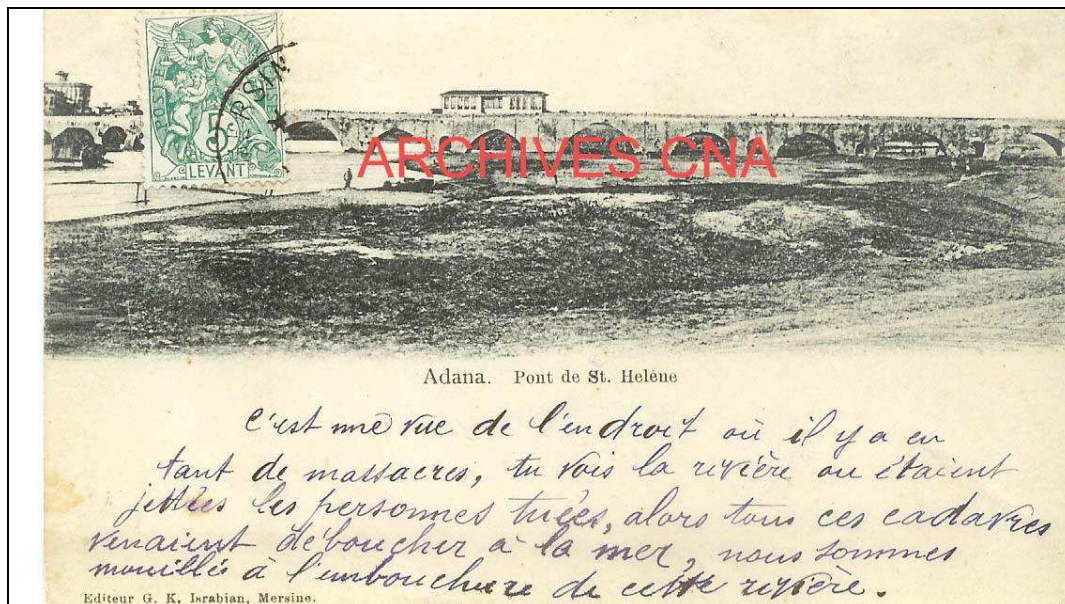 POSTE
5
LEVANT
MERSINE
ARCHIVES CNA
Adana. Pont de St. Helène
C'est une vue de l'endroit où il y a eu
tant de massacres, tu vois la rivière ou étaient
jettées les personnes tuées, alors tous ces cadavres
venaient déboucher à la mer, nous sommes
mouillés à l'embouchure de cette rivière.
Editeur G. K. Israbian, Mersine.